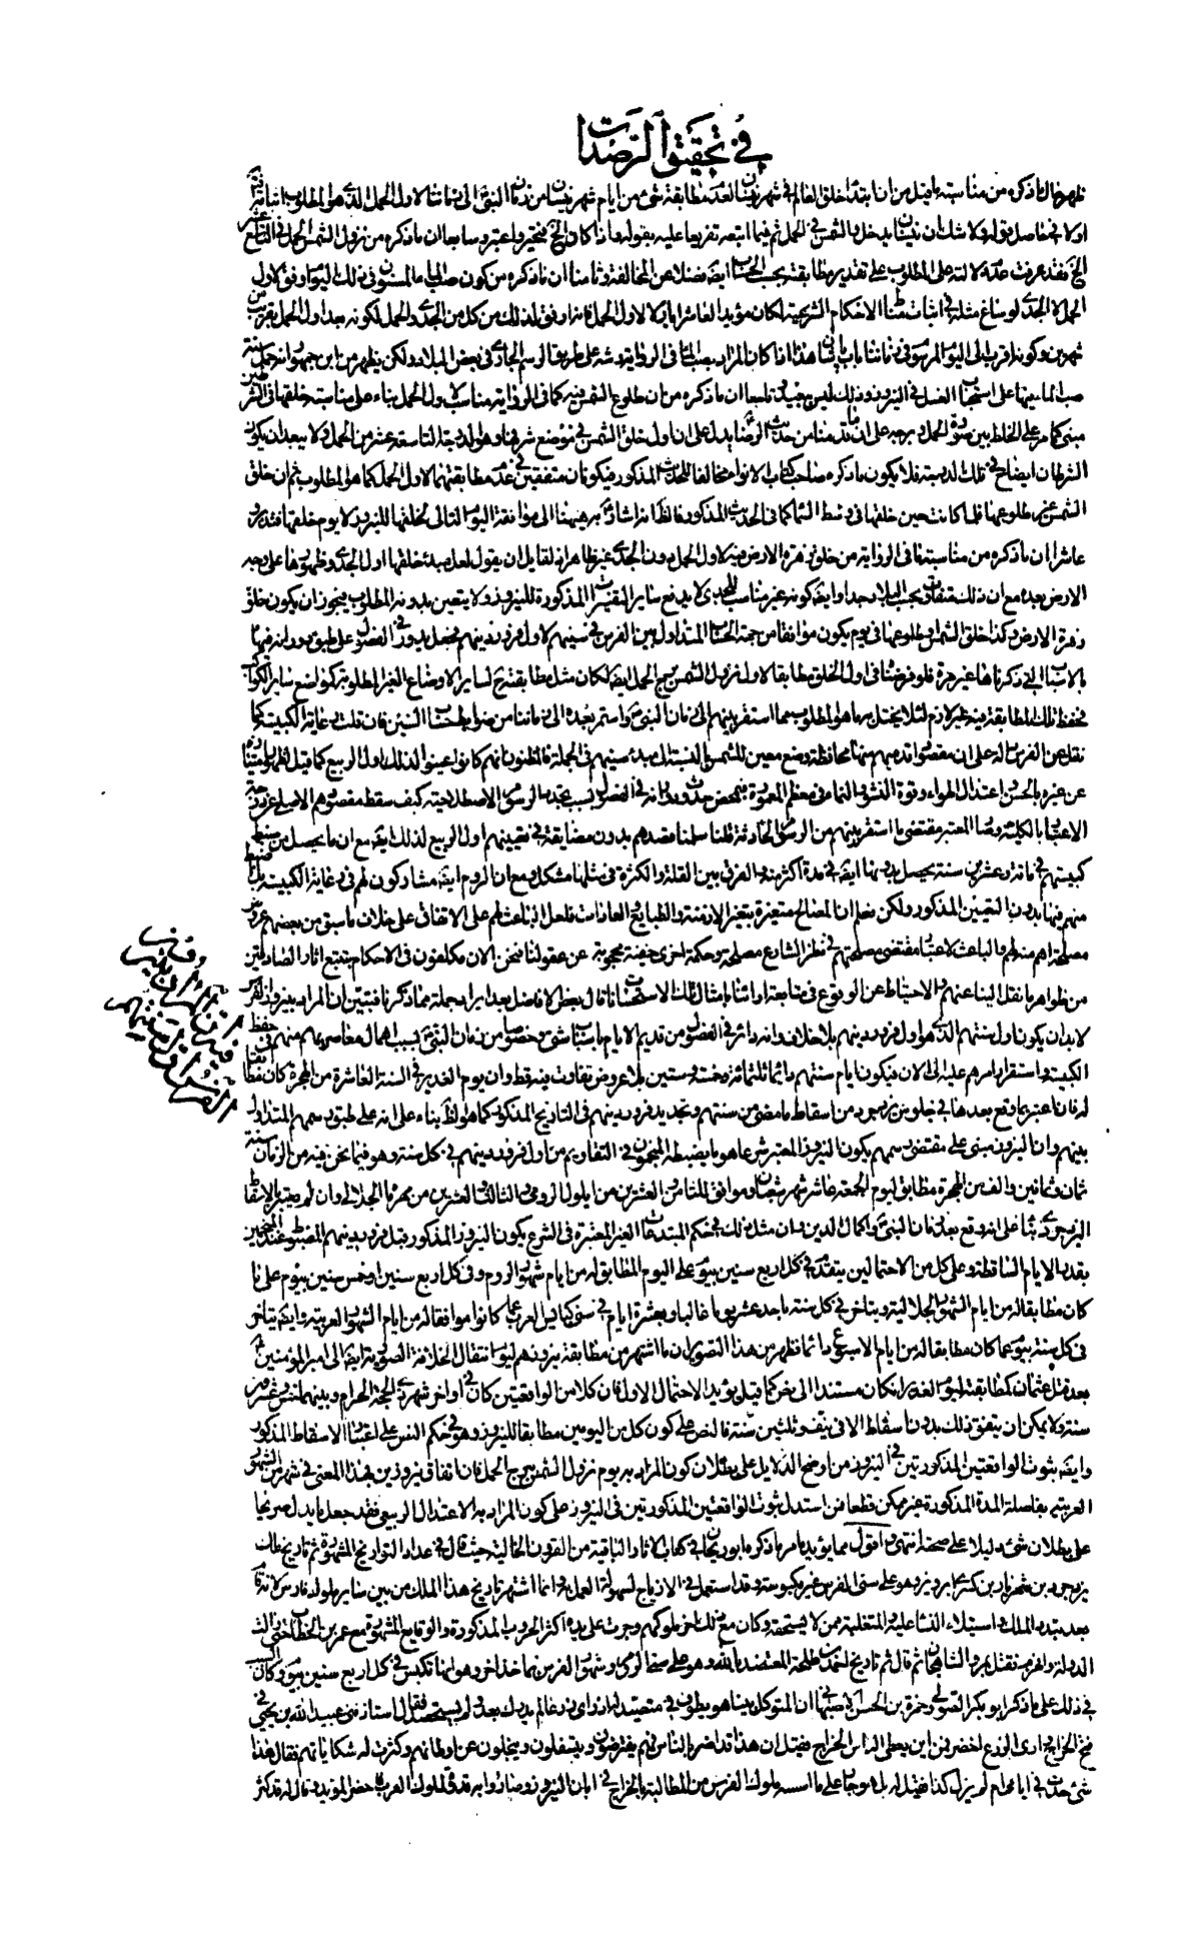 في تحقيق الرصدات
ظهر حال ما ذكره من مناسبته ما قيل من ان ابتداء خلق العالم في شهر نيسان لعدم مطابقة شئ من ايام شهر نيسان من زمان النبي الى زماننا لاول الحمل الذي هو المطلوب اثباته
اولا في حاصل قوله ولا شك ان نيسان يدخل والشمس في الحمل ثم فيما اتبعه تفريعا عليه بقوله فاذا كان الحج وسابعا ان ما ذكره من نزول الشمس الحمل في التاسع عشر
الحج فقد عرفت عدم دلالته على المطلوب على تقدير مطابقته بحسب الحساب ايضا فضلا عن المخالفة وثامنا ان ما ذكره من كون صب الماء المسنون في ذلك اليوم اوفق لاول
الحمل لا الجدي لو ساغ مثله في اثبات مثل الاحكام الشرعية لكان مؤيدا لعاشر ايار لا لاول الحمل فانه اوفق لذلك من كل من الجدي والحمل لكونه بعد اول الحمل بقريب من
شهرين وكونه اقرب الى اليوم المرسوم في زماننا هذا اذا كان المراد بصب الماء في الرواية رشه على طريق الرسم الجاري في بعض البلاد ولكن يظهر من ابن جمهور انه حمل سنة
صب الماء على استحباب الغسل في النيروز وذلك ليس ببعيد وتاسعا ان ما ذكره من ان طلوع الشمس فيه كما في الرواية مناسب لاول الحمل بناء على مناسبة خلقها في الشرطين
مبني كما مر على الخلط بين صورة الحمل وبرجه على ان ما تقدم منا من حديث الرضا يدل على ان اول خلق الشمس في موضع شرفها وهو الدرجة التاسعة عشر من الحمل ولا يبعد ان يكون
الشرطان ايضا في تلك الدرجة فلا يكون ما ذكره صاحب كتاب الانواء مخالفا للحديث المذكور فيكونان متفقين في عدم مطابقتهما لاول الحمل كما هو المطلوب ثم ان خلق
الشمس غير طلوعها فلما كانت حين خلقها في وسط السماء كما في الحديث المذكور فالظاهر اشارته هيهنا الى موافقة اليوم التالي لخلقها للنيروز لا يوم خلقها فتدبر و
عاشرا ان ما ذكره من مناسبة ما في الرواية من خلق زهرة الارض فيه لاول الحمل دون الجدي غير ظاهر اذ لقائل ان يقول لعل مبدء خلقها اول الجدي وظهورها على وجه
الارض بعده مع ان ذلك متفاوت بحسب البلاد جدا وايضا كونه غير مناسب للجدي لا يدفع ساير التفسيرات المذكورة للنيروز ولا يتعين بدونه المطلوب فيجوز ان يكون خلق
زهرة الارض وكذا خلق الشمس وطلوعها في يوم يكون موافقا من جهة الحساب المتداول بين الفرس في سنيهم لاول فروردينهم فحصل بدور في الفصول على طبق دورانه فيها
بالاسباب التي ذكرناها غير مرة فلو فرضنا في اول الخلق مطابقا لاول نزول الشمس برج الحمل ايضا لكان مثل مطابقته لساير الاوضاع الغير المطلوبة كمواضع ساير الكواكب
فحفظ تلك المطابقة فيه غير لازم لئلا يختل به ما هو المطلوب مما استقر بينهم الى زمان النبي واستمر بعده الى زماننا من ضوابط حساب السنين فان قلت رعاية الكبيسة كما
نقل عن الفرس دالة على ان مقصود قدمائهم منها محافظة وضع معين للشمس بالنسبة الى مبدء سنيهم في الجملة فالمظنون انهم كانوا عينوا لذلك اول الربيع كما قيل لظهور امتيازه
عن غيره بالحس واعتدال الهواء وقوة النشو والنماء في معظم المعمورة فبمحض حدوث دورانه في الفصول بسبب تجدد الرسوم الاصطلاحية كيف سقط مقصودهم الاصلي عن درجة
الاعتبار بالكلية وصار المعتبر مقتضى ما استقر بينهم من الرسوم الحادثة قلنا سلمنا قصدهم بدون مضايقة في تعيينهم اول الربيع لذلك ايضا مع ان ما يحصل من ضبط
كبيستهم في مائة وعشرين سنة يحصل بدونها ايضا في مدة اكثر منه والفرق بين القلة والكثرة في مثلها مشكل ومع ان الروم ايضا مشاركون لهم في رعاية الكبيسة بل
منهم فيها بدون التعيين المذكور ولكن نعلم ان المصالح متغيرة بتغير الازمنة والطبايع والعادات فلعل الباعث لهم على الاتفاق على خلاف ما سبق من بعضهم عروض
مصلحة اهم منه لهم والباعث لاعتبار مقتضى مصلحتهم في نظر الشارع مصلحة وحكمة اخرى خفية محجوبة عن عقولنا فنحن الان مكلفون في الاحكام بتتبع اثار الصادقين
من ظواهر ما نقل الينا عنهم والاحتياط عن الوقوع في متابعة اراءنا بامثال تلك الاستحسانات قال بعض الافاضل بعد ايراد جملة مما ذكرنا فتبين ان المراد بنيروز الفرس
لا بد ان يكون اول سنتهم الذي هو اول فروردينهم بلا خلاف وانه دائر في الفصول من قديم الايام باسباب شتى وخصوصا من زمان النبي بسبب اهمال معاصريهم منهم في حفظ
الكبيسة واستقرار امرهم عليه الى الان فيكون ايام سنتهم دائما ثلثمائة وخمسة وستين بلا عروض تفاوت فيه قط وان يوم الغدير في السنة العاشرة من الهجرة كان مطابقا
له فان اعتبر ما وقع بعدها في جلوس يزدجرد من اسقاط ما مضى من سنتهم وتجديد فروردينهم في التاريخ المذكور كما هو الظاهر بناء على انه على طبق رسمهم المتداول
بينهم وان النيروز مبني على مقتضى رسمهم يكون النيروز المعتبر شرعا هو ما يضبطه المنجمون في التقاويم من اول فروردينهم في كل سنة وهو فيما نحن فيه من الزمان سنة
ثمان وثمانين والف من الهجرة مطابق ليوم الجمعة عاشر شهر شعبان وموافق للثامن والعشرين من ايلول الرومي والثالث والعشرين من مهر ماه الجلالي وان لم يعتبر الاسقاط
اليزدجردي بناء على انه وقع بعد زمان النبي واكمال الدين وان مثل ذلك في حكم المبتدعات الغير المعتبرة في الشرع يكون النيروز المذكور قبل فروردينهم المضبوط عند المنجمين
بقدر الايام الساقطة وعلى كل من الاحتمالين يتقدم في كل اربع سنين بيوم على اليوم المطابق له من ايام شهور الروم وفي كل اربع سنين او خمس سنين بيوم على ما
كان مطابقا له من ايام الشهور الجلالية ويتاخر في كل سنة باحد عشر يوما غالبا وبعشرة ايام في سني كبايس العرب عما كانوا موافقا له من ايام الشهور العربية وايضا يتاخر
في كل سنة بيوم عما كان مطابقا له من ايام الاسبوع دائما فظهر من هذا التصوير ان ما اشتهر من مطابقة نيروزهم ليوم انتقال الخلافة الصورية ايضا الى امير المؤمنين
بعد قتل عثمان كمطابقته ليوم الغدير ان كان مستندا الى خبر كما قيل يؤيد الاحتمال الاول فان كلا من الواقعتين كان في اواخر شهر ذي الحجة الحرام وبينهما خمس وعشرون
سنة ولا يمكن ان يتفق ذلك بدون اسقاط الا في نيف وثلثين سنة فالنص على كون كل من اليومين مطابقا للنيروز هو في حكم النص على اعتبار الاسقاط المذكور
وايضا ثبوت الواقعتين المذكورتين في النيروز من اوضح الدلايل على بطلان كون المراد به يوم نزول الشمس برج الحمل فان اتفاق نيروزين بهذا المعنى في شهر من الشهور
العربية بفاصلة المدة المذكورة غير ممكن قطعا فمن استدل بثبوت الواقعتين المذكورتين في النيروز على كون المراد به الاعتدال الربيعي فقد جعل ما يدل صريحا
على بطلان شئ دليلا على صحته انتهى واقول مما يؤيد ما مر ما ذكره ابو ريحان في كتاب الاثار الباقية من القرون الخالية حيث قال في عداد التواريخ المشهورة ثم تاريخ ملك
يزدجرد بن شهريار بن كسرى ابرويز وهو على سني الفرس غير مكبوسة وقد استعمل في الازياج لسهولة العمل به وانما اشتهر تاريخ هذا الملك من بين ساير ملوك فارس لانه قام
بعد تبدد الملك واستيلاء النساء عليه والمتغلبة ممن لا يستحقه وكان مع ذلك اخر ملوكهم وجرت على يده اكثر الحروب المذكورة والوقايع المشهورة مع عمر بن الخطاب حتى زالت
الدولة وانهزم فقتل بمرو الشاهجان ثم قال ثم تاريخ احمد بن طلحة المعتضد بالله وهو على سني الروم وشهور الفرس بماخذ اخر وهو انها تكبس في كل اربع سنين بيوم وكان السبب
في ذلك على ما ذكر ابو بكر الصولي وحمزة بن الحسن الاصبهاني ان المتوكل بينا هو يطوف في متصيد له اذ راى زرعا لم يدرك بعد ولم يستحصد فقال استاذنني عبيد الله بن يحيى
في فتح الخراج وارى الزرع اخضر فمن اين يعطي الناس الخراج فقيل له ان هذا قد اضر بالناس فهم يقترضون ويتسلفون وينجلون عن اوطانهم وكثرت له شكاياتهم فقال هذا
شئ حدث في ايامي ام لم يزل كذا فقيل له بل هو جار على ما اسسه ملوك الفرس من المطالبة بالخراج في ابان النيروز وصاروا به قدوة لملوك العرب فاحضر الموبد وقال له قد كثر